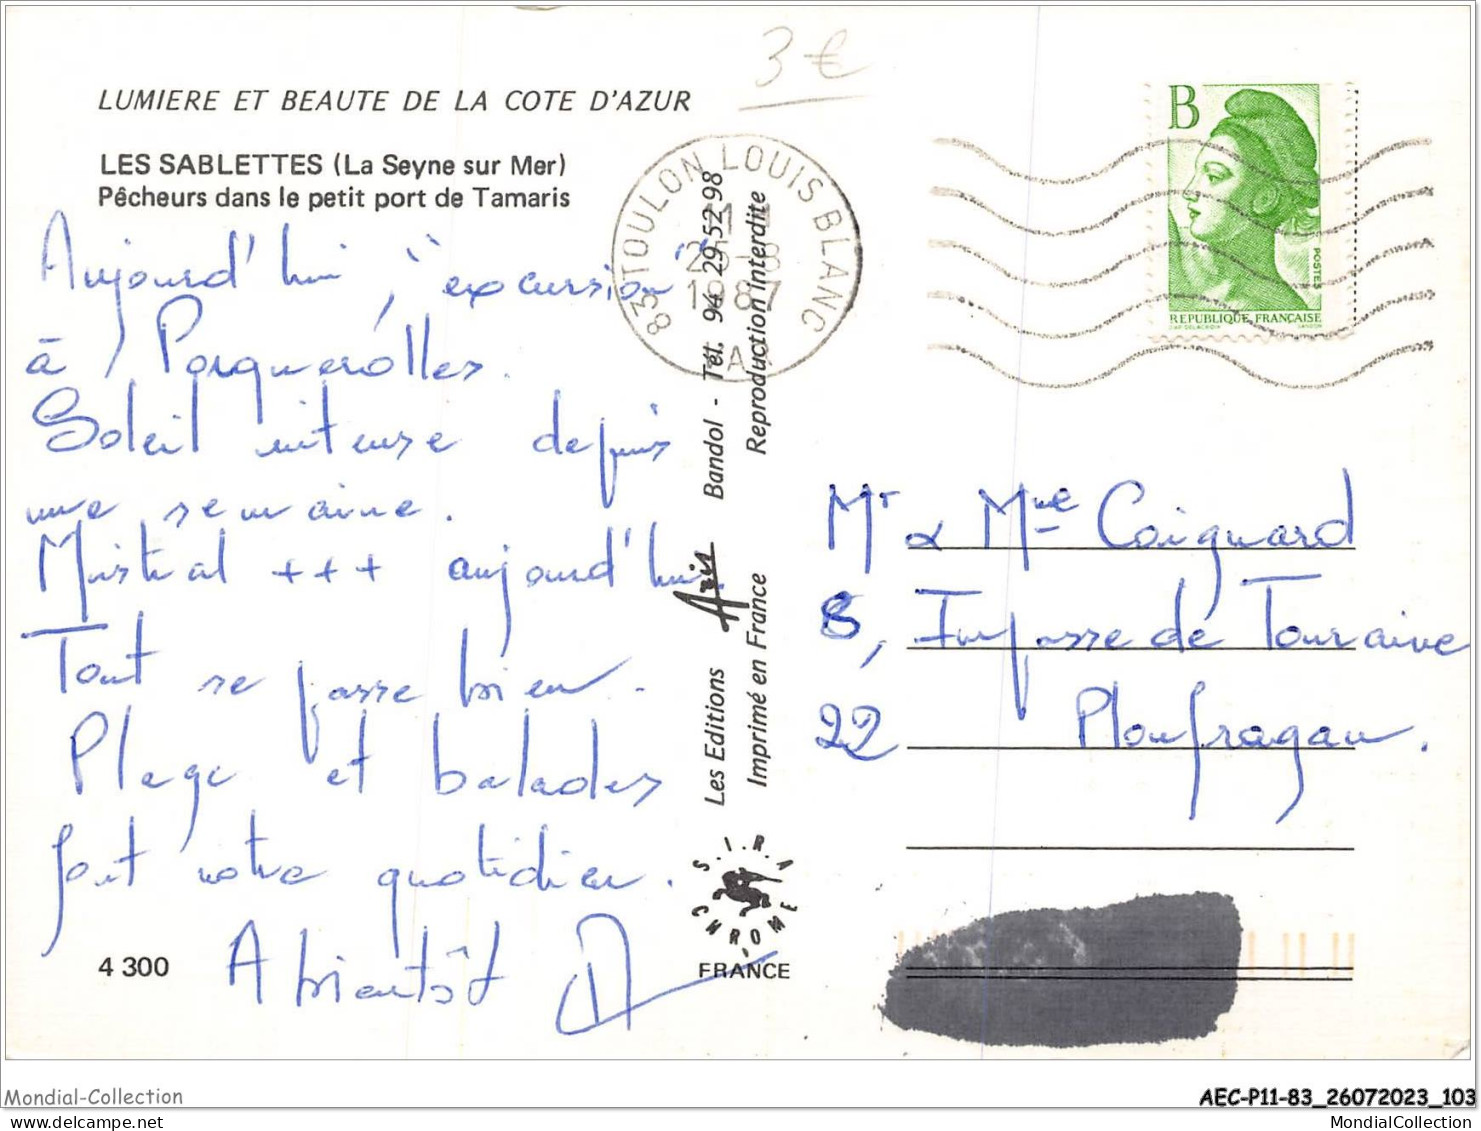 3 €
LUMIERE ET BEAUTE DE LA COTE D'AZUR
LES SABLETTES (La Seyne sur Mer)
Pêcheurs dans le petit port de Tamaris
Aujourd'hui, "excursion"
à Porquerolles.
Soleil intense depuis
une semaine.
Mistral +++ aujourd'hui.
Tout se passe bien.
Plage et balades
font notre quotidien.
A bientôt
4 300
83 TOULON LOUIS BLANC
1987
VAR
B
POSTES
REPUBLIQUE FRANÇAISE
CAP DELACROIX GANDON
Les Editions Aris Bandol - Tél. 94 29 52 98
Imprimé en France Reproduction interdite
S.I.R.A
CHROME
FRANCE
Mr & Mme Coignard
8, Impasse de Touraine
22 Ploufragan.
Mondial-Collection
©delcampe.net
AEC-P11-83_26072023_103
MondialCollection